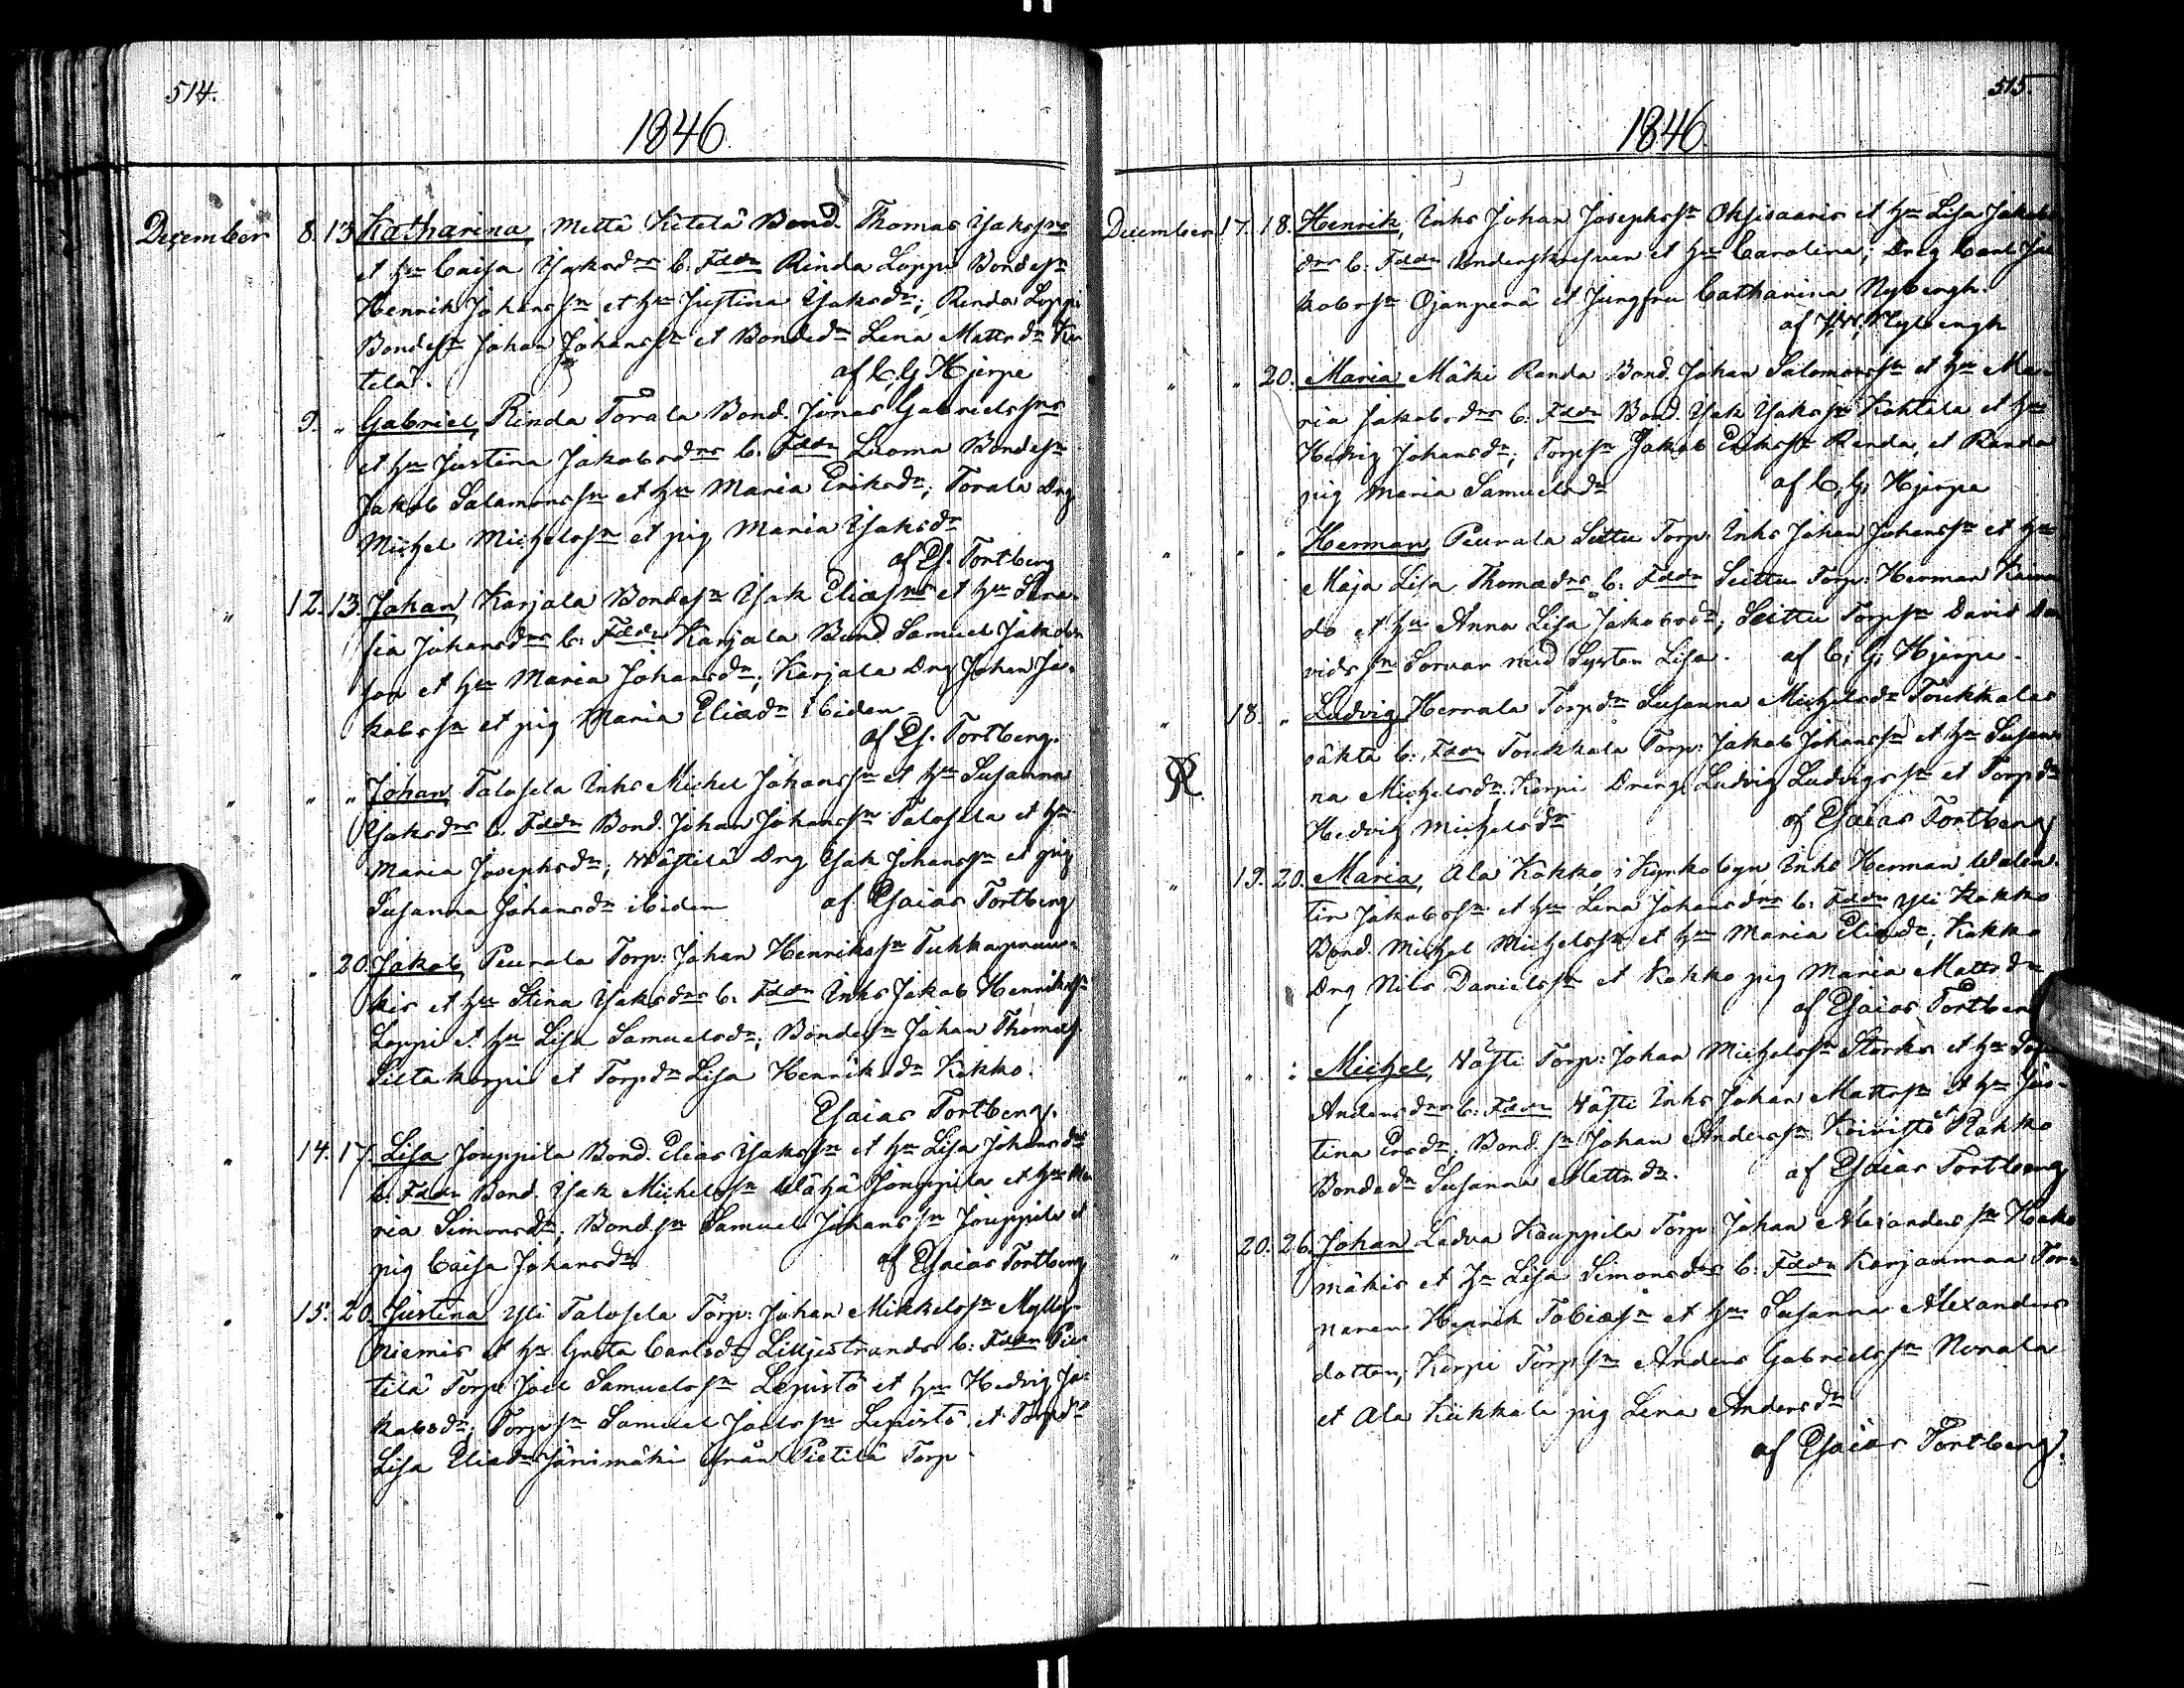 514.
1846.
December 8. 13. Katharina, Mettä Kitelä Bond. Thomas Isakssns
et hu Caisa Isaksdrs b: Faddr Rinda Loppi Bondesn
Henrik Johanssn et hu Justina Isaksdr; Rinda Loppi
Bondesn Johan Johanssn et Bondedr Lena Mattsdr Ki-
telä. af C. G. Hjerpe
" 9. " Gabriel, Rinda Torala Bond. Jonas Gabrielssns
et hu Justina Jakobsdrs b. Faddr Luoma Bondesn
Jakob Salomonssn et hu Maria Eriksdr; Torala Drg
Michel Michelssn et pig Maria Isaksdr
af Es. Tortberg
" 12. 13. Johan, Karjala Bondesn Isak Eliassns et hu Sera-
fia Johansdrs b: Faddr Karjala Bond. Samuel Jakobs-
son et hu Maria Johansdr; Karjala Drg Johan Ja-
kobssn et pig Maria Eliædr ibidem
af Es. Tortberg.
" " " Johan, Talvsela Inhs Michel Johanssn et hu Susanna
Isaksdrs b. Faddr Bond. Johan Johanssn Talvsela et hu
Maria Josephsdr; Drg Isak Johanssn et pig
Susanna Johansdr ibidem af Esaias Tortberg
" " 20. Jakob, Peurala Torp: Johan Henrikssn
kis et hu Stina Isaksdrs b: Faddr Inhs Jakob Henrikssn
Loppi et hu Lisa Samuelsdr; Bondesn Johan Thomæs.
Siltakorpi et Torpdr Lisa Henriksdr Kokko.
Esaias Tortberg.
" 14. 17. Lisa Jouppila Bond. Elias Isakssn et hu Lisa Johansdrs
b. Faddr Bond. Isak Michelssn Wähä Jouppila et hu Ma-
ria Simonsdr; Bondsn Samuel Johanssn Jouppila et
pig Caisa Johansdr af Esaias Tortberg
" 15. 20. Justina Yli Talvsela Torp: Johan Mikkelssn Mylly-
niemis et hu Greta Carlsdr Liljestrands b: Faddr Pie-
tilä Torp: Joel Samuelssn Lepistö et hu Hedvig Ja-
kobsdr; Torpsn Samuel Joelssn Lepistö et Torpdr
Lisa Eliædr Jänimäki från Pietilä Torp.
515.
1846.
December 17. 18. Henrik, Inhs Johan Josephssn Oksisaaris et hu Lisa Jakobs-
drs b. Faddr Underskrifven et hu Carolina; Dreg Carl Ja-
kobssn Ojanperä et Jungfru Catharina Nybergh.
af J. W. Nybergh
" " 20. Maria Mäki Randa Bond. Johan Salomonssn et hu Ma-
ria Jakobsdrs b. Faddr Bond. Isak Isakssn Kohtala et hu
Hedvig Johansdr; Torpsn Jakob Erikssn Renda, et Randa
pig Maria Samuelsdr af C. G. Hjerpe
" " " Herman Peurala Seittu Torp. Inhs Johan Johanssn et hu
Maja Lisa Thomædrs b: Faddr Seittu Torp: Herman
do et hu Anna Lisa Jakobsdr; Seittu Torpsn David Da-
vidssn Sorvar med Syster Lisa. af C. G. Hjerpe.
" 18. " Ludvig Hernala Torpdr Susanna Michelsdr Toukkalas
oäkta b: Faddr Toukkala Torp: Jakob Johanssn et hu Susan-
R. na Michelsdr; Korpi Dreng Ludvig Ludvigssn et Torpdr
Hedvig Michelsdr af Esaias Tortberg
" 19. 20. Maria, Ala Kokko i Kyrkobyn Inhs Herman Walen-
tin Jakobssn et hu Lena Johansdrs b: Faddr Yli Kokko
Bond. Michel Michelssn et hu Maria Eliædr; Kokko
Drg Nils Danielssn et Kokko pig Maria Mattsdr
af Esaias Tortberg
" " : Michel, Torp: Johan Michelssn Storks et hu
Andersdrs b. Faddr Inhs Johan Mattssn et hu Jus-
tina Ersdr; Bond.sn Johan Anderssn Koivisto et Kokko
Bondedr Susanna Mattsdr. af Esaias Tortberg
" 20. 26. Johan Ladva Kauppila Torp: Johan Alexanderssn Hako-
mäkis et hu Lisa Simonsdrs b: Faddr Karjanmaa Tor-
paren Henrik Tobiæsn et hu Susanna Alexanders
dotter; Korpi Torpsn Anders Gabrielssn Norala
et Ala Kukkola pig Lena Andersdr
af Esaias Tortberg.